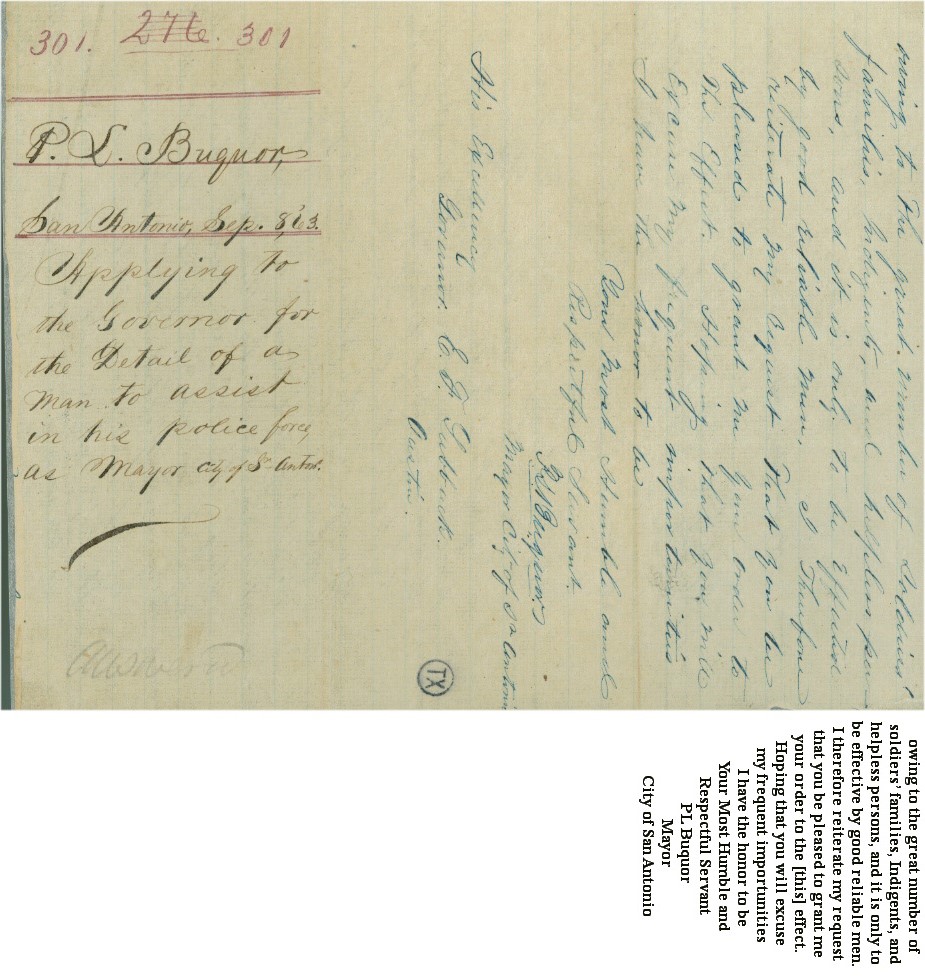 301. 276. 301
P. L. Buquor,
San Antonio, Sep. 8, 63.
Applying to
the Governor for
the Detail of a
Man to assist
in his police force,
as Mayor city of Sn Anto.
Answered
owing, to the great number of Soldiers'
families, Indigents, and helpless per-
sons, and it is only to be effected
by good reliable men, I Therefore
reiterate my request That you be
pleased to grant me your order to
the Effect. Hoping that you will
Excuse my frequent importunities
I have the honor to be
Your most Humble and
Respectful Servant.
P L Buquor
Mayor City of Sn Antonio
His Excellency
Governor. E. F. Lubbock.
Austin.
TX
owing to the great number of
soldiers' families, Indigents, and
helpless persons, and it is only to
be effective by good reliable men.
I therefore reiterate my request
that you be pleased to grant me
your order to the [this] effect.
Hoping that you will excuse
my frequent importunities
I have the honor to be
Your Most Humble and
Respectful Servant
PL Buquor
Mayor
City of San Antonio